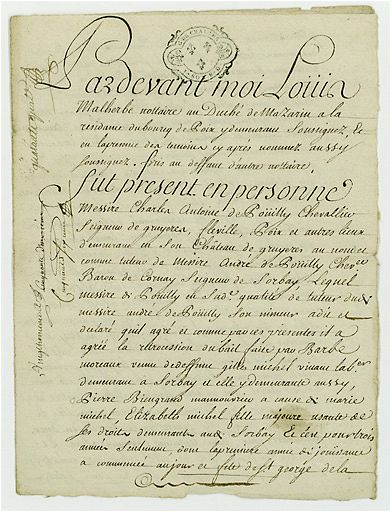 Pardevant moi Loüis
Malherbe nottaire au Duché de Mazarin a la
residance du bourg de Poix y demeurant Soussigné, Et
en la presence des temoins cy apres nommez aussy
soussignez. pris au deffaut d'autre nottaire,
fut present en personne
Messire Charles Antoine de Poüilly Chevallier
Seigneur de gruyeres, fleville, Poix et autres lieux
demeurant en Son Château de gruyeres au nom et
comme tuteur de Messire André de Poüilly Chevr
Baron de Cornay Seigneur de Sorbay, Lequel
messire de Poüilly en Sade qualité de tuteur dudt
messire andre de Poüilly Son mineur a dit et
declaré qu'il agré et comme par ces presentes il a
agréé la retrocession du bail faite par Barbe
moreaux veuve de deffunt gilles michel vivant labr
demeurant a Sorbay et elle y demeurante aussy,
Pierre a cause de marie
michel, Elizabeth michel fille majeure usante de
ses droits demeurants audt Sorbay Et ce pour trois
année Seulement, dont la premiere année de joüissance
a commencée au jour et feste de St george de la